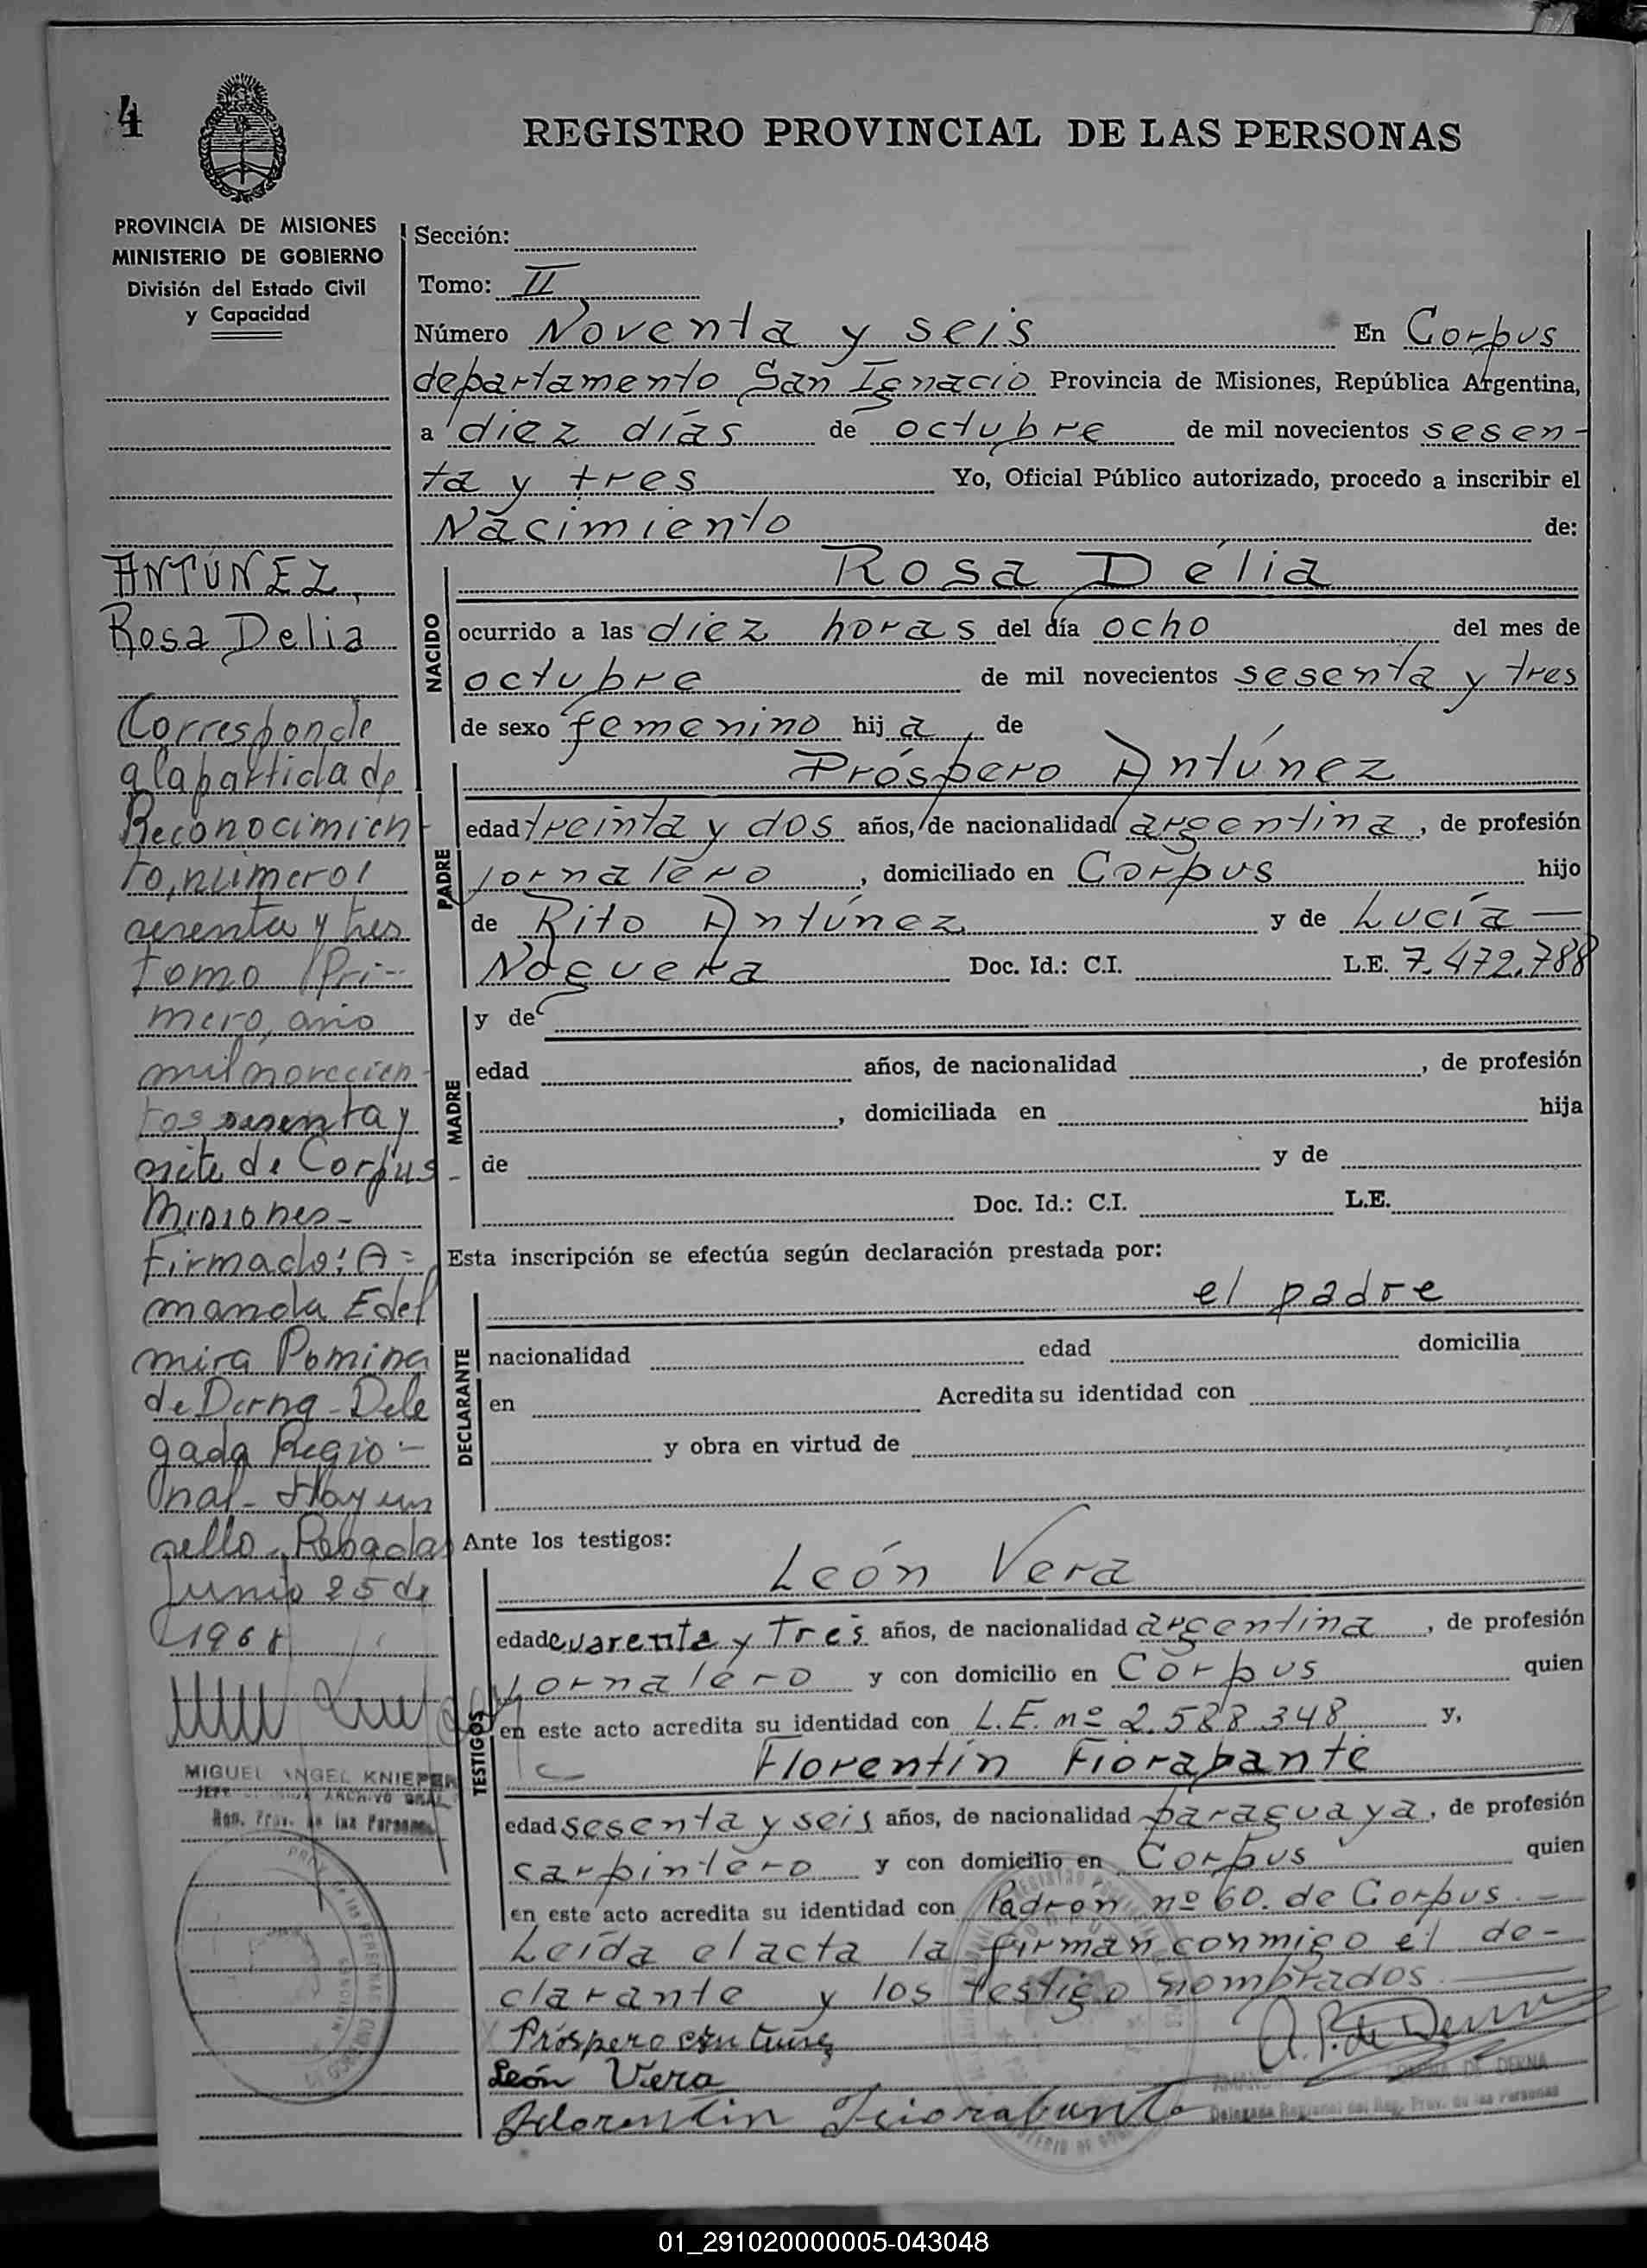 4
REGISTRO PROVINCIAL DE LAS PERSONAS
PROVINCIA DE MISIONES
MINISTERIO DE GOBIERNO
División del Estado Civil
y Capacidad
ANTÚNEZ,
Rosa Delia
Corresponde
a la partida de
Reconocimien
to, número
sesenta y tres
tomo Pri-
mero, año
mil novecien-
tos sesenta y
siete de Corpus-
Misiones-
Firmado: A=
manda Edel
mira Pomina
de Derna - Dele
gada Regio-
nal - Hay un
sello - Posadas
Junio 25 de
196
MIGUEL ANGEL KNIEPER
ARCHIVO GRAL.
Reg. Prov. de las Personas
Sección:
Tomo: II
Número Noventa y seis En Corpus
departamento San Ignacio Provincia de Misiones, República Argentina,
a diez días de octubre de mil novecientos sesen-
ta y tres Yo, Oficial Público autorizado, procedo a inscribir el
Nacimiento de:
NACIDO
Rosa Delia
ocurrido a las diez horas del día ocho del mes de
octubre de mil novecientos sesenta y tres
de sexo femenino hija, de
PADRE
Próspero Antúnez
edad treinta y dos años, de nacionalidad argentina, de profesión
jornalero, domiciliado en Corpus hijo
de Rito Antúnez y de Lucía —
Noguera Doc. Id.: C.I. L.E. 7.472.788
MADRE
y de
edad años, de nacionalidad , de profesión
, domiciliada en hija
de y de
Doc. Id.: C.I. L.E.
Esta inscripción se efectúa según declaración prestada por:
DECLARANTE
el padre
nacionalidad edad domicilia
en Acredita su identidad con
y obra en virtud de
Ante los testigos:
TESTIGOS
León Vera
edad cuarenta y tres años, de nacionalidad argentina, de profesión
jornalero y con domicilio en Corpus quien
en este acto acredita su identidad con L.E. nº 2.588.348 y,
Florentín Fiorabante
edad sesenta y seis años, de nacionalidad paraguaya, de profesión
carpintero y con domicilio en Corpus quien
en este acto acredita su identidad con Padron nº 60. de Corpus. —
Leída el acta la firman conmigo el de-
clarante y los testigo nombrados —
Próspero Antúnez
A.P. de Derna
León Vera
DE DERNA
Delegada Regional del Reg. Prov. de las Personas
Florentin Fiorabante
01_291020000005-043048